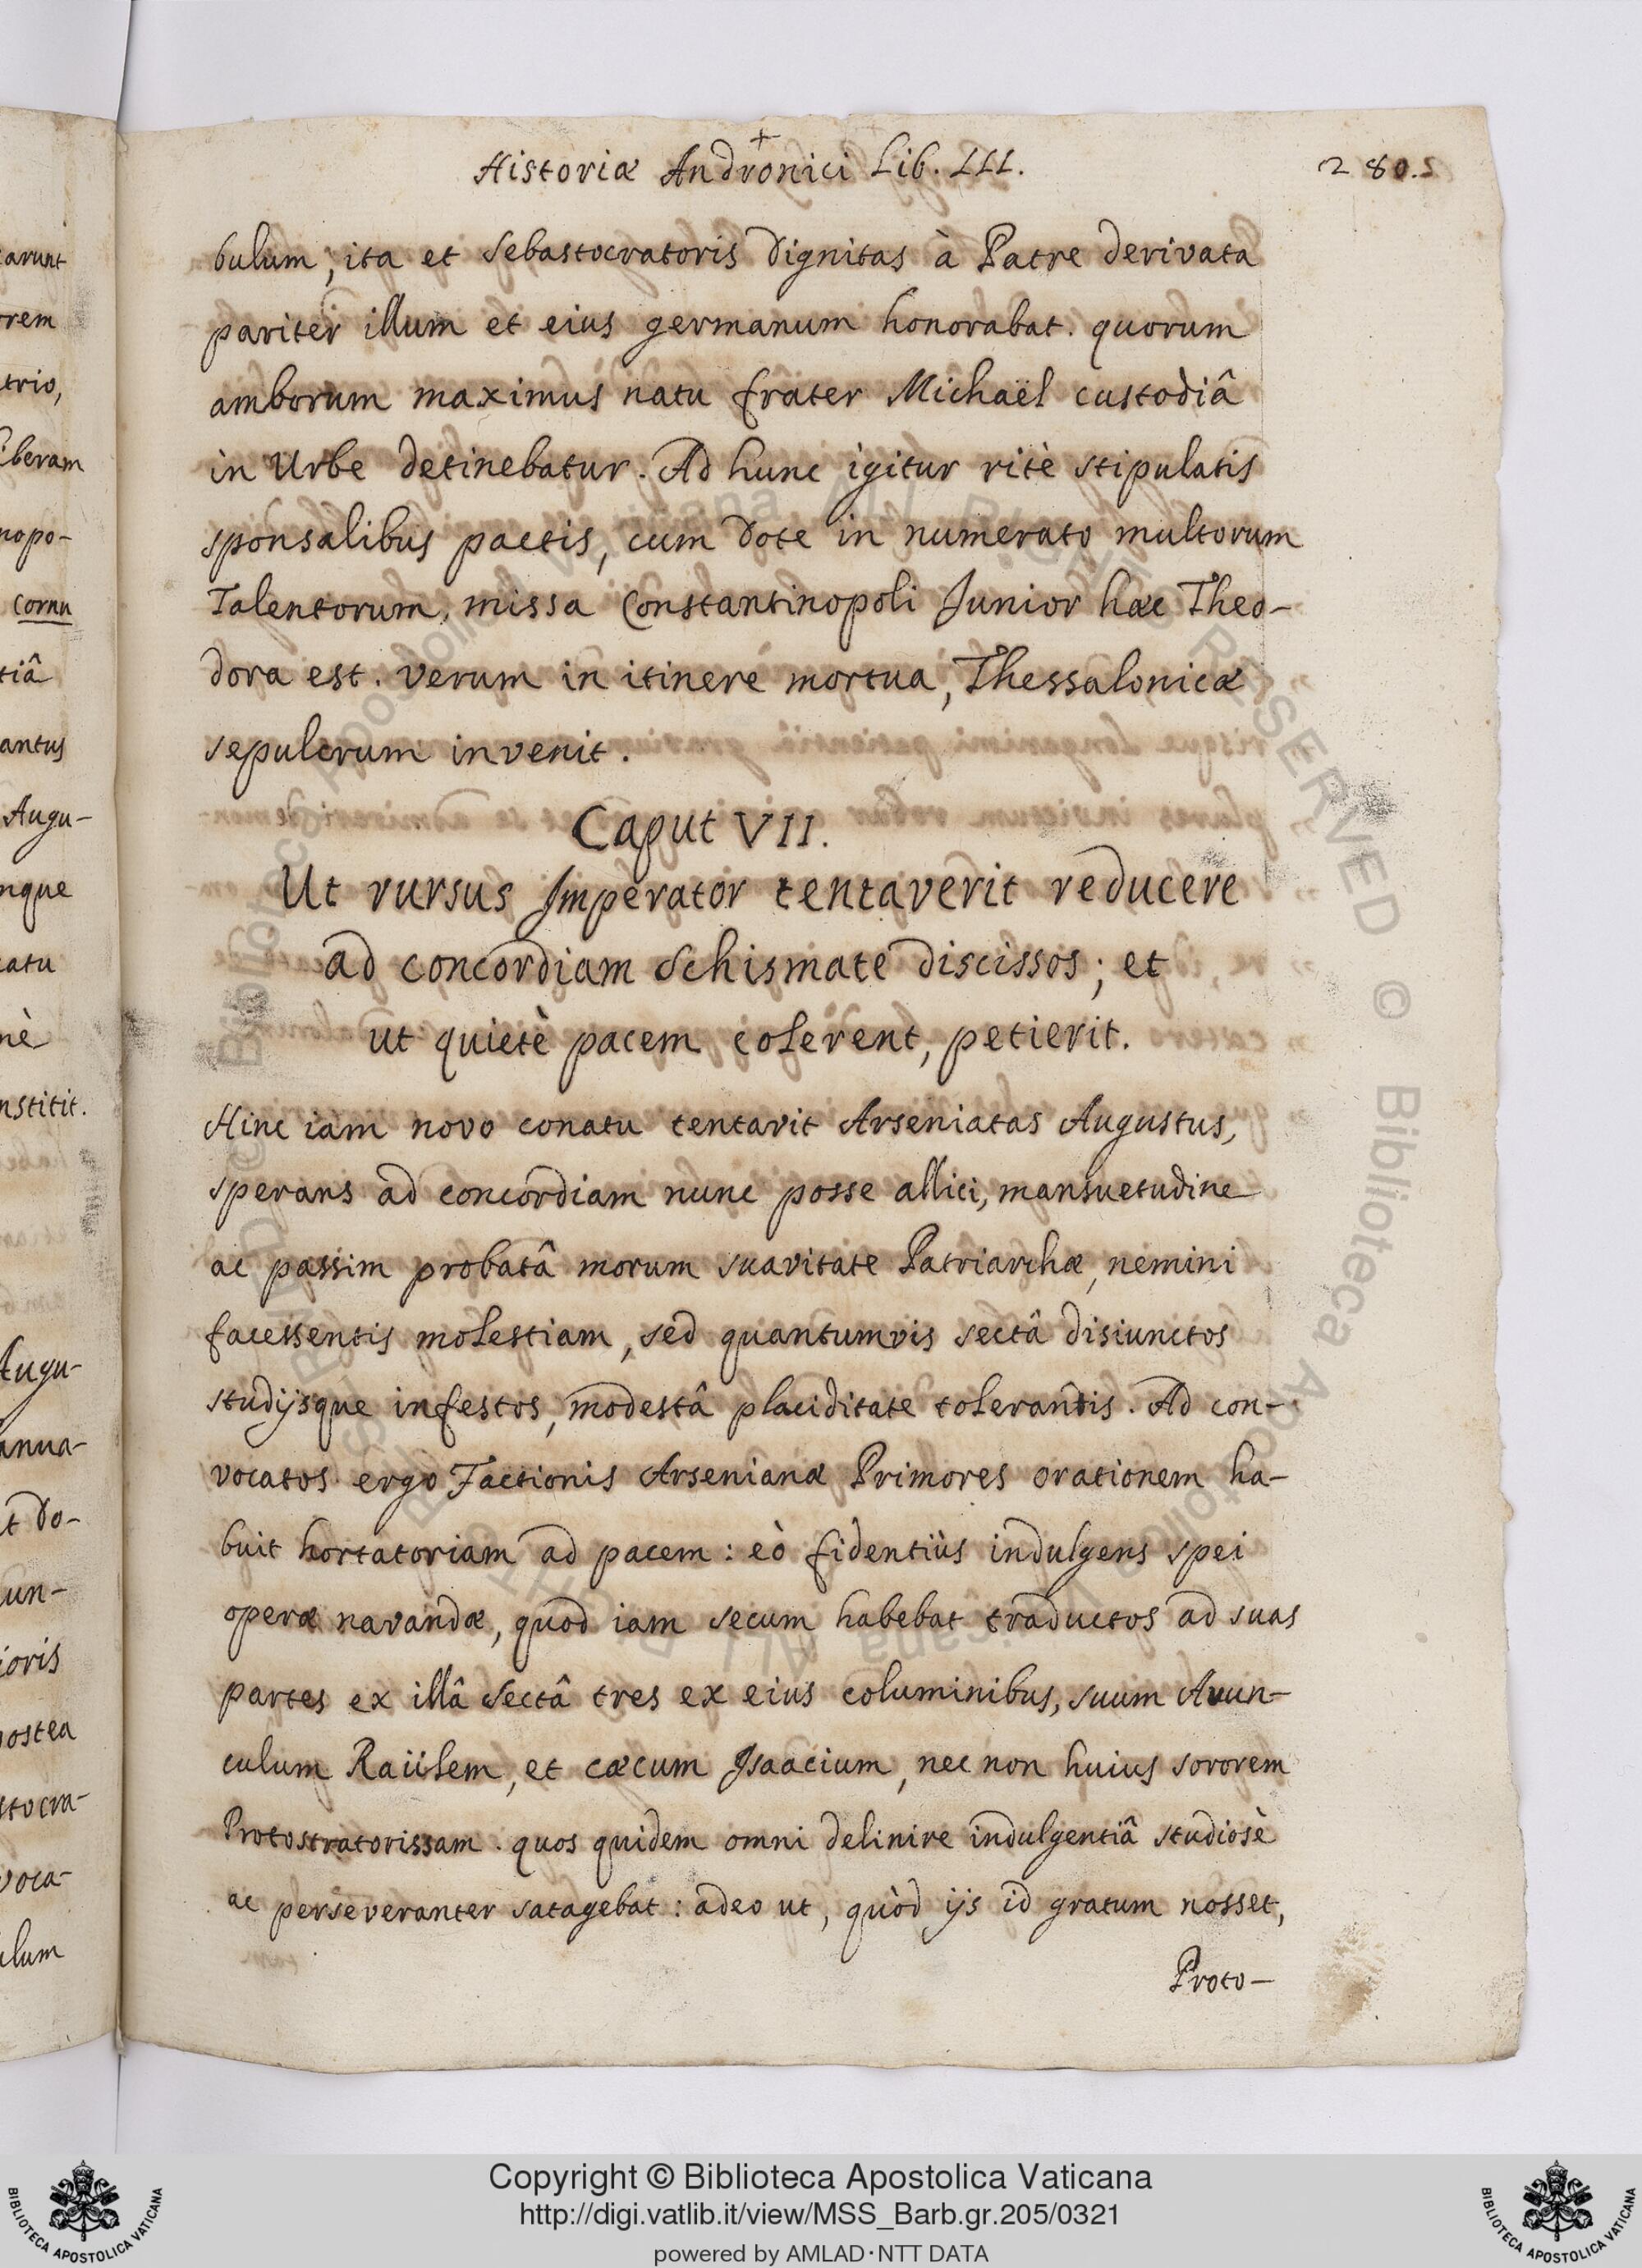 +
Historiæ Andronici Lib. III.
280.5
bulum; ita et Sebastocratoris Dignitas à Patre derivata
pariter illum et eius germanum honorabat. quorum
amborum maximus natu frater Michaël custodiâ
in Urbe detinebatur. Ad hunc igitur ritè stipulatis
sponsalibus pactis, cum dote in numerato multorum
Talentorum, missa Constantinopoli Junior hæc Theo-
dora est. verum in itinere mortua, Thessalonicæ
sepulcrum invenit.
Caput VII.
Ut rursus Imperator tentaverit reducere
ad concordiam Schismate discissos; et
ut quietè pacem colerent, petierit.
Hinc iam novo conatu tentavit Arseniatas Augustus,
sperans ad concordiam nunc posse allici, mansuetudine
ac passim probatâ morum suavitate Patriarchæ, nemini
facessentis molestiam, sed quantumvis sectâ disiunctos
studijsque infestos, modestâ placiditate tolerantis. Ad con-
vocatos ergo Factionis Arsenianæ Primores orationem ha-
buit hortatoriam ad pacem: eò fidentiùs indulgens spei
operæ navandæ, quod iam secum habebat traductos ad suas
partes ex illâ Sectâ tres ex eius columinibus, suum Avun-
culum Raülem, et cæcum Isaacium, nec non huius sororem
Protostratorissam. quos quidem omni delinire indulgentiâ studiosè
ac perseveranter satagebat: adeo ut, quòd ijs id gratum nosset,
Proto-
arunt
rem
trio,
beram
nopo-
cornu
tiâ
antus
Augu-
nque
atu
nè
nstitit.
Augu-
anua-
t do-
un-
ioris
ostea
stocra-
voca-
ulum
Copyright © Biblioteca Apostolica Vaticana
http://digi.vatlib.it/view/MSS_Barb.gr.205/0321
powered by AMLAD·NTT DATA
BIBLIOTECA APOSTOLICA VATICANA
BIBLIOTECA APOSTOLICA VATICANA